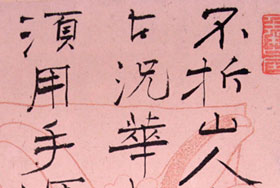 不折山人
古况華
須用手